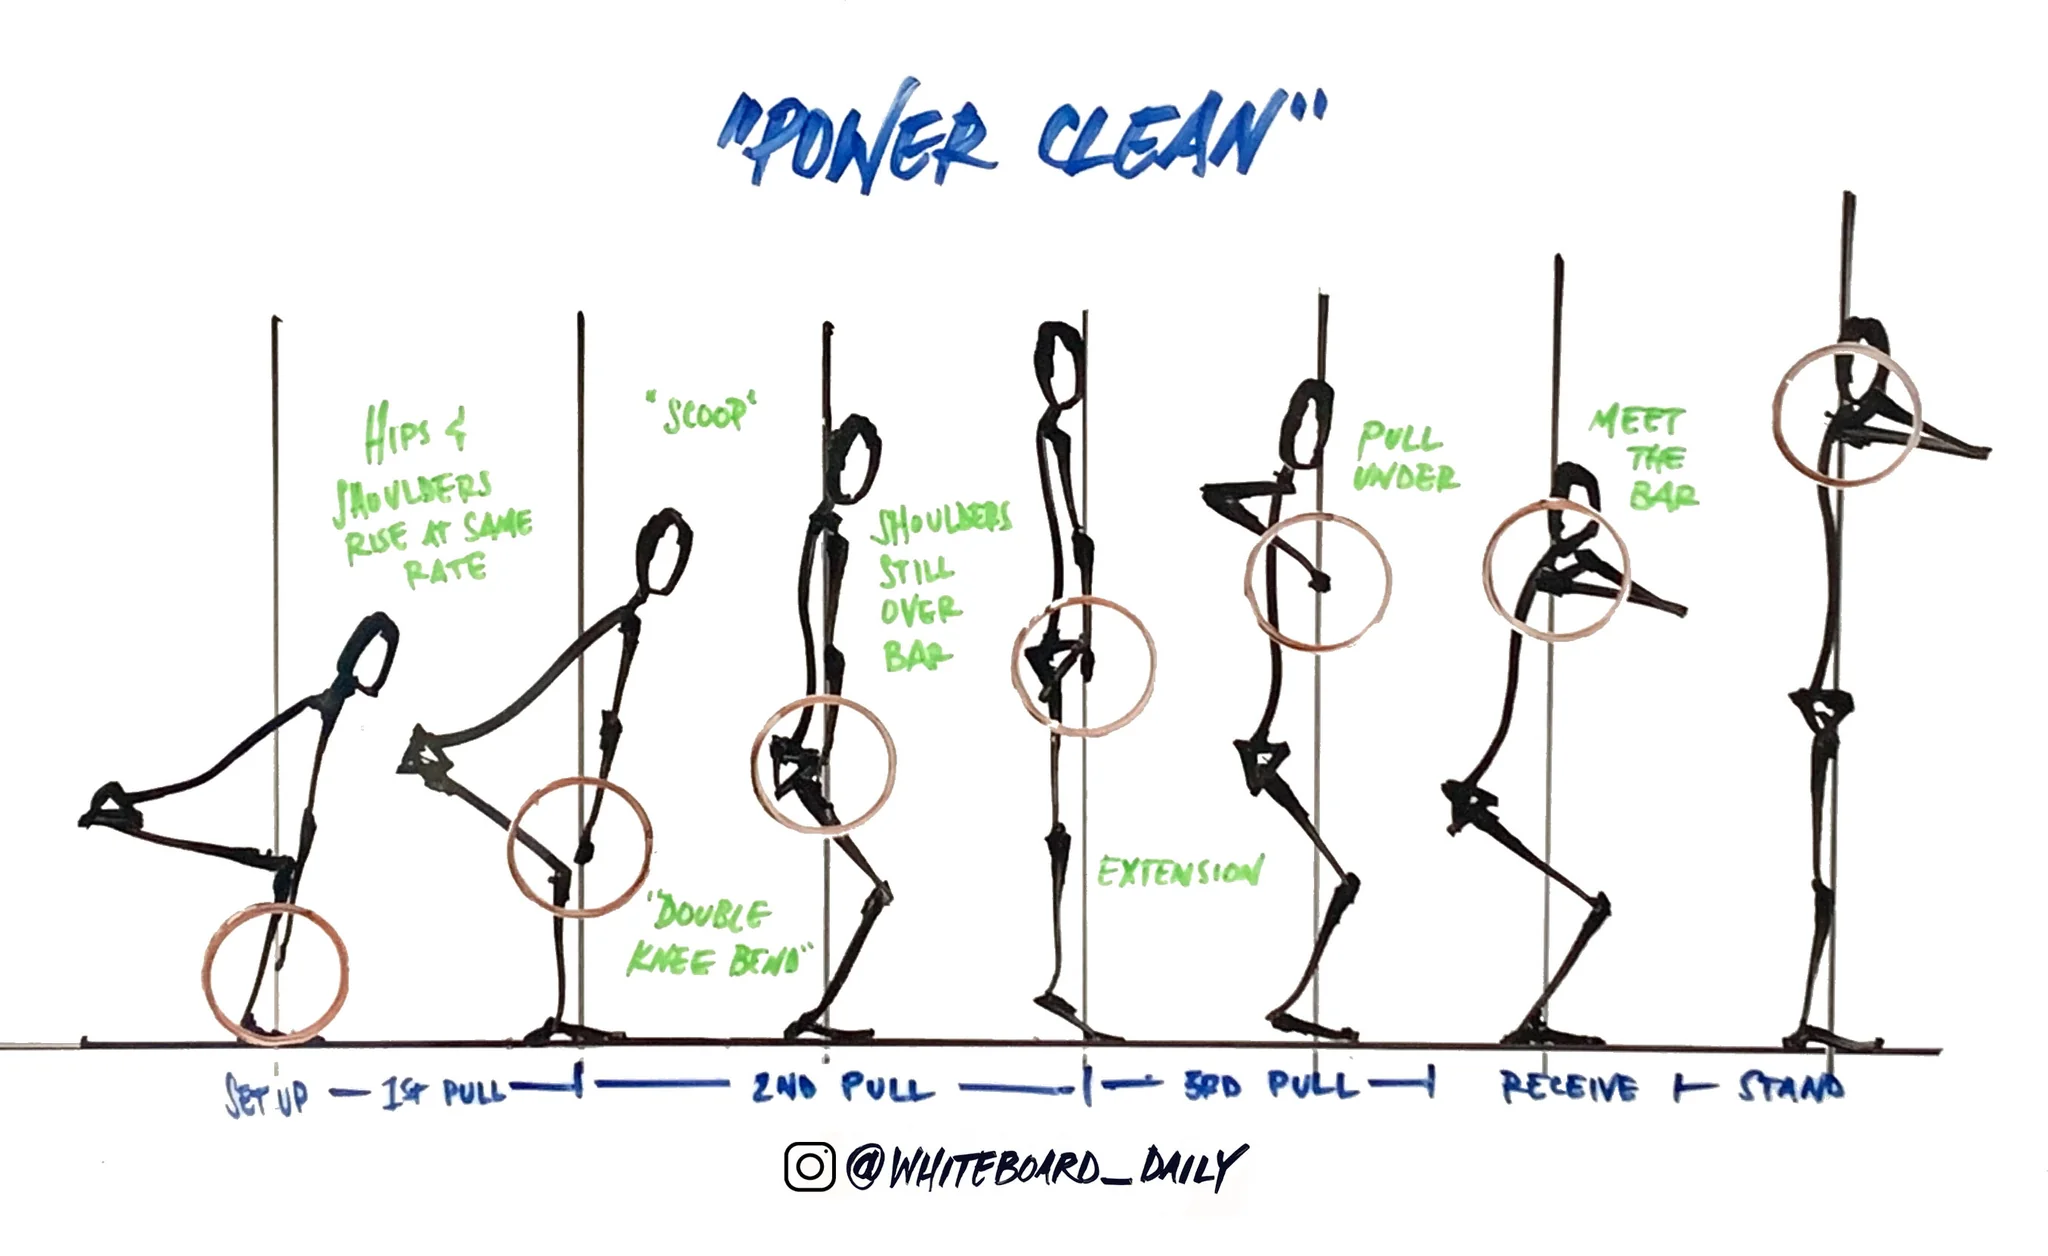 "POWER CLEAN"
HIPS &
SHOULDERS
RISE AT SAME
RATE
"SCOOP"
"DOUBLE
KNEE BEND"
SHOULDERS
STILL
OVER
BAR
EXTENSION
PULL
UNDER
MEET
THE
BAR
SET UP — 1ST PULL — 2ND PULL — 3RD PULL — RECEIVE — STAND
@WHITEBOARD_DAILY